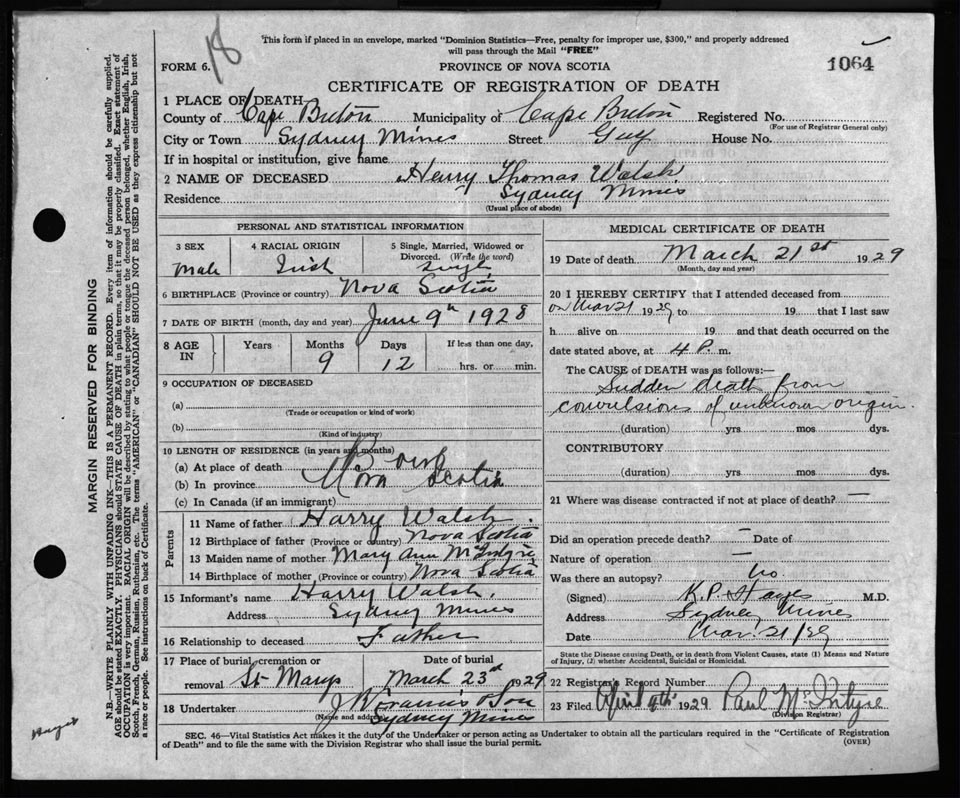 18
This form if placed in an envelope, marked "Dominion Statistics—Free, penalty for improper use, $300," and properly addressed
will pass through the Mail "FREE"
FORM 6.
PROVINCE OF NOVA SCOTIA
1064
CERTIFICATE OF REGISTRATION OF DEATH
1 PLACE OF DEATH
County of Cape Breton Municipality of Cape Breton Registered No.
(For use of Registrar General only)
City or Town Sydney Mines Street Guy House No.
If in hospital or institution, give name
2 NAME OF DECEASED Henry Thomas Walsh
Residence Sydney Mines
(Usual place of abode)
PERSONAL AND STATISTICAL INFORMATION
3 SEX Male
4 RACIAL ORIGIN Irish
5 Single, Married, Widowed or Divorced. (Write the word) Single
6 BIRTHPLACE (Province or country) Nova Scotia
7 DATE OF BIRTH (month, day and year) June 9th 1928
8 AGE IN Years Months 9 Days 12 If less than one day, hrs. or min.
9 OCCUPATION OF DECEASED
(a)
(Trade or occupation or kind of work)
(b)
(Kind of industry)
10 LENGTH OF RESIDENCE (in years and months)
(a) At place of death
(b) In province Nova Scotia
(c) In Canada (if an immigrant)
Parents
11 Name of father Harry Walsh
12 Birthplace of father (Province or country) Nova Scotia
13 Maiden name of mother Mary Ann McIntyre
14 Birthplace of mother (Province or country) Nova Scotia
15 Informant's name Harry Walsh
Address Sydney Mines
16 Relationship to deceased Father
17 Place of burial, cremation or removal St Marys Date of burial March 23rd 1929
18 Undertaker & Son
(Name and address) Sydney Mines
MEDICAL CERTIFICATE OF DEATH
19 Date of death March 21st 1929
(Month, day and year)
20 I HEREBY CERTIFY that I attended deceased from
on Mar 21 1929 to 19 that I last saw
h alive on 19 and that death occurred on the
date stated above, at 4 P. m.
The CAUSE of DEATH was as follows:—
Sudden death from
convulsions of unknown origin.
(duration) yrs mos dys.
CONTRIBUTORY
(duration) yrs mos dys.
21 Where was disease contracted if not at place of death? —
Did an operation precede death? — Date of
Nature of operation —
Was there an autopsy? No.
(Signed) K.P. Hayes M.D.
Address Sydney Mines
Date Mar. 21/29
State the Disease causing Death, or in death from Violent Causes, state (1) Means and Nature
of Injury, (2) whether Accidental, Suicidal or Homicidal.
22 Registrar's Record Number
23 Filed April 4th 1929 Paul McIntyre
(Division Registrar)
SEC. 46—Vital Statistics Act makes it the duty of the Undertaker or person acting as Undertaker to obtain all the particulars required in the "Certificate of Registration
of Death" and to file the same with the Division Registrar who shall issue the burial permit.
(OVER)
MARGIN RESERVED FOR BINDING
N.B.—WRITE PLAINLY WITH UNFADING INK—THIS IS A PERMANENT RECORD. Every item of information should be carefully supplied.
AGE should be stated EXACTLY. PHYSICIANS should STATE CAUSE OF DEATH in plain terms, so that it may be properly classified. Exact statement of
OCCUPATION is very important. RACIAL ORIGIN will be described by stating to what people or tongue the deceased person belonged, whether English, Irish,
Scotch, French, German, Russian, Ruthenian, etc. The terms "AMERICAN" or "CANADIAN" SHOULD NOT BE USED as they express citizenship but not
a race or people. See instructions on back of Certificate.